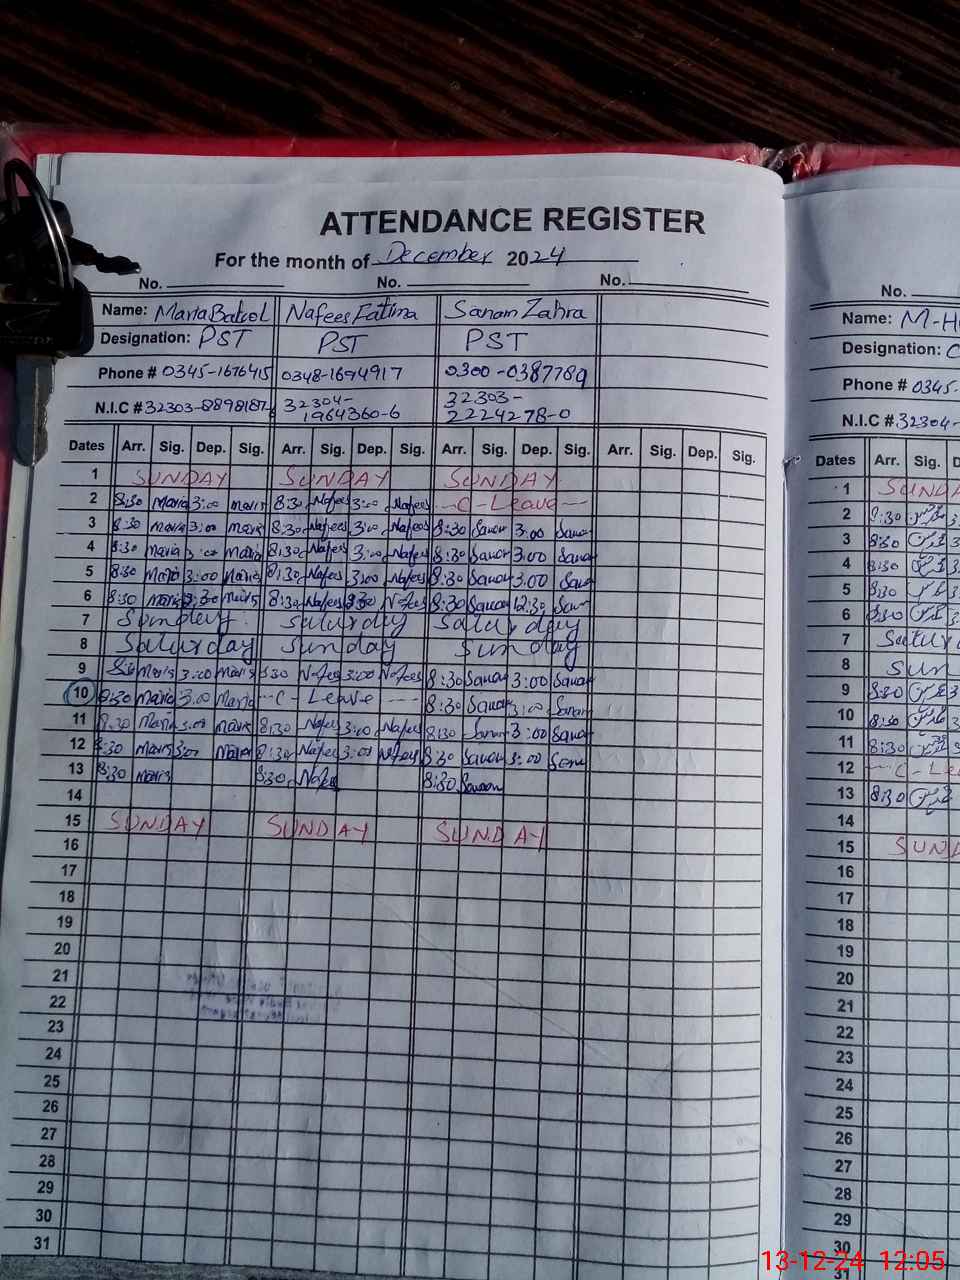 ATTENDANCE REGISTER
For the month of December 2024
No. No. No.
Name: Maria Batool Nafees Fatima Sanam Zahra
Designation: PST PST PST
Phone # 0345-1676415 0348-1694917 0300-0387789
N.I.C # 32303-8898187- 32304-1964360-6 32303-2224278-0
Dates Arr. Sig. Dep. Sig. Arr. Sig. Dep. Sig. Arr. Sig. Dep. Sig. Arr. Sig. Dep. Sig.
1 SUNDAY SUNDAY SUNDAY
2 8:30 Maria 3:00 Maria 8:30 Nafees 3:00 Nafees -C-Leave-
3 8:30 Maria 3:00 Maria 8:30 Nafees 3:00 Nafees 8:30 Sanam 3:00 Sanam
4 8:30 Maria 3:00 Maria 8:30 Nafees 3:00 Nafees 8:30 Sanam 3:00 Sanam
5 8:30 Maria 3:00 Maria 8:30 Nafees 3:00 Nafees 8:30 Sanam 3:00 Sanam
6 8:30 Maria Maria 8:30 Nafees Nafees 8:30 Sanam 12:30 Sanam
7 Sunday Saturday Saturday
8 Saturday Sunday Sunday
9 Maria 3:00 Maria 8:30 Nafees 3:00 Nafees 8:30 Sanam 3:00 Sanam
10 8:30 Maria 3:00 Maria -C-Leave- 8:30 Sanam 3:00 Sanam
11 8:30 Maria 3:00 Maria 8:30 Nafees 3:00 Nafees 8:30 Sanam 3:00 Sanam
12 8:30 Maria 3:00 Maria 8:30 Nafees 3:00 Nafees 8:30 Sanam 3:00 Sanam
13 8:30 Maria 8:30 Nafees 8:30 Sanam
14
15 SUNDAY SUNDAY SUNDAY
16
17
18
19
20
21
22
23
24
25
26
27
28
29
30
31
No.
Name: M-H
Designation: C
Phone # 0345-
N.I.C # 32304-
Dates Arr. Sig. D
1 SUNDA
2 8:30
3 8:30
4 8:30
5 8:30
6 8:30
7 Satur
8 Sun
9 8:30
10 8:30
11 8:30
12 -C-Le
13 8:30
14
15 SUN
16
17
18
19
20
21
22
23
24
25
26
27
28
29
30
31
13-12-24 12:05